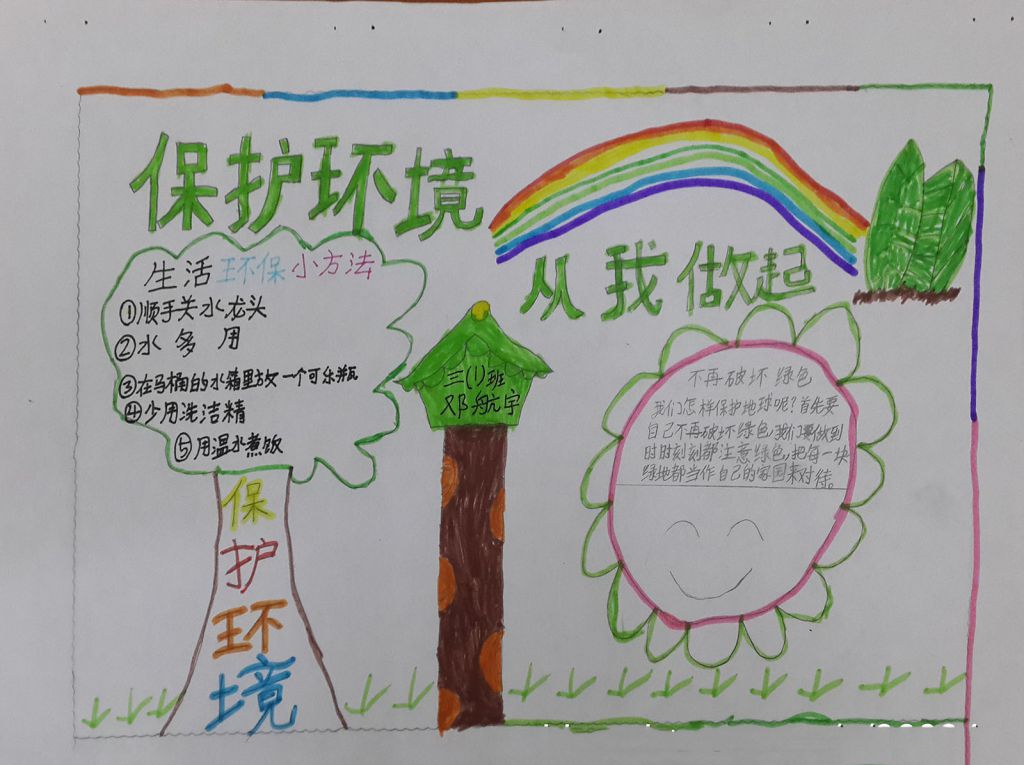 保护环境
从我做起
生活环保小方法
①顺手关水龙头
②水多用
③在马桶的水箱里放一个可乐瓶
④少用洗洁精
⑤用温水煮饭
保
护
环
境
三(1)班
邓航宇
不再破坏绿色
我们怎样保护地球呢?首先要
自己不再破坏绿色,我们要做到
时时刻刻都注意绿色,把每一块
绿地都当作自己的家国来对待。